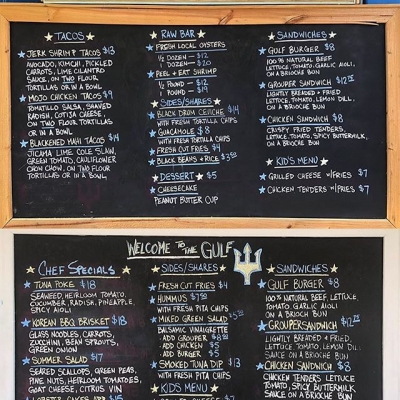 TACOS
JERK SHRIMP TACOS $13
AVOCADO, KIMCHI, PICKLED
CARROTS, LIME CILANTRO
SAUCE, ON TWO FLOUR
TORTILLAS OR IN A BOWL
MOJO CHICKEN TACOS $9
TOMATILLO SALSA, SHAVED
RADISH, COTIJA CHEESE,
ON TWO FLOUR TORTILLAS
OR IN A BOWL
BLACKENED MAHI TACOS $14
JICAMA LIME COLE SLAW,
GREEN TOMATO, CAULIFLOWER
CHOW CHOW, ON TWO FLOUR
TORTILLAS OR IN A BOWL
RAW BAR
FRESH LOCAL OYSTERS
½ DOZEN - $12
1 DOZEN - $20
PEEL & EAT SHRIMP
½ POUND - $12
1 POUND - $19
SIDES/SHARES
BLACK DRUM CEVICHE $14
WITH FRESH TORTILLA CHIPS
GUACAMOLE $8
WITH FRESH TORTILLA CHIPS
FRESH CUT FRIES $4
BLACK BEANS & RICE $3
DESSERT $5
CHEESECAKE
PEANUT BUTTER CUP
SANDWICHES
GULF BURGER $8
100% NATURAL BEEF
LETTUCE, TOMATO, GARLIC AIOLI
ON A BRIOCHE BUN
GROUPER SANDWICH $12
LIGHTLY BREADED & FRIED
LETTUCE, TOMATO, LEMON DILL
SAUCE ON A BRIOCHE BUN
CHICKEN SANDWICH $8
CRISPY FRIED TENDERS,
LETTUCE, TOMATO, SPICY BUTTERMILK
SAUCE ON A BRIOCHE BUN
KID'S MENU
GRILLED CHEESE W/FRIES $7
CHICKEN TENDERS W/FRIES $7
WELCOME TO THE GULF
CHEF SPECIALS
TUNA POKE $18
SEAWEED, HEIRLOOM TOMATO,
CUCUMBER, RADISH, PINEAPPLE,
SPICY AIOLI
KOREAN BBQ BRISKET $18
GLASS NOODLES, CARROTS
ZUCCHINI, BEAN SPROUTS,
GREEN ONION
SUMMER SALAD $17
SEARED SCALLOPS, GREEN PEAS,
PINE NUTS, HEIRLOOM TOMATOES,
GOAT CHEESE, CITRUS VIN
SIDES/SHARES
FRESH CUT FRIES $4
HUMMUS $7
WITH FRESH PITA CHIPS
MIXED GREEN SALAD $5
BALSAMIC VINAIGRETTE
ADD GROUPER $8
ADD CHICKEN $5
ADD BURGER $5
SMOKED TUNA DIP $13
WITH FRESH PITA CHIPS
KIDS MENU
SANDWICHES
GULF BURGER $8
100% NATURAL BEEF, LETTUCE,
TOMATO, GARLIC AIOLI
ON A BRIOCHE BUN
GROUPER SANDWICH $12
LIGHTLY BREADED & FRIED
LETTUCE, TOMATO, LEMON DILL
SAUCE ON A BRIOCHE BUN
CHICKEN SANDWICH $8
CHICKEN TENDERS LETTUCE
TOMATO, SPICY BUTTERMILK
SAUCE ON A BRIOCHE BUN